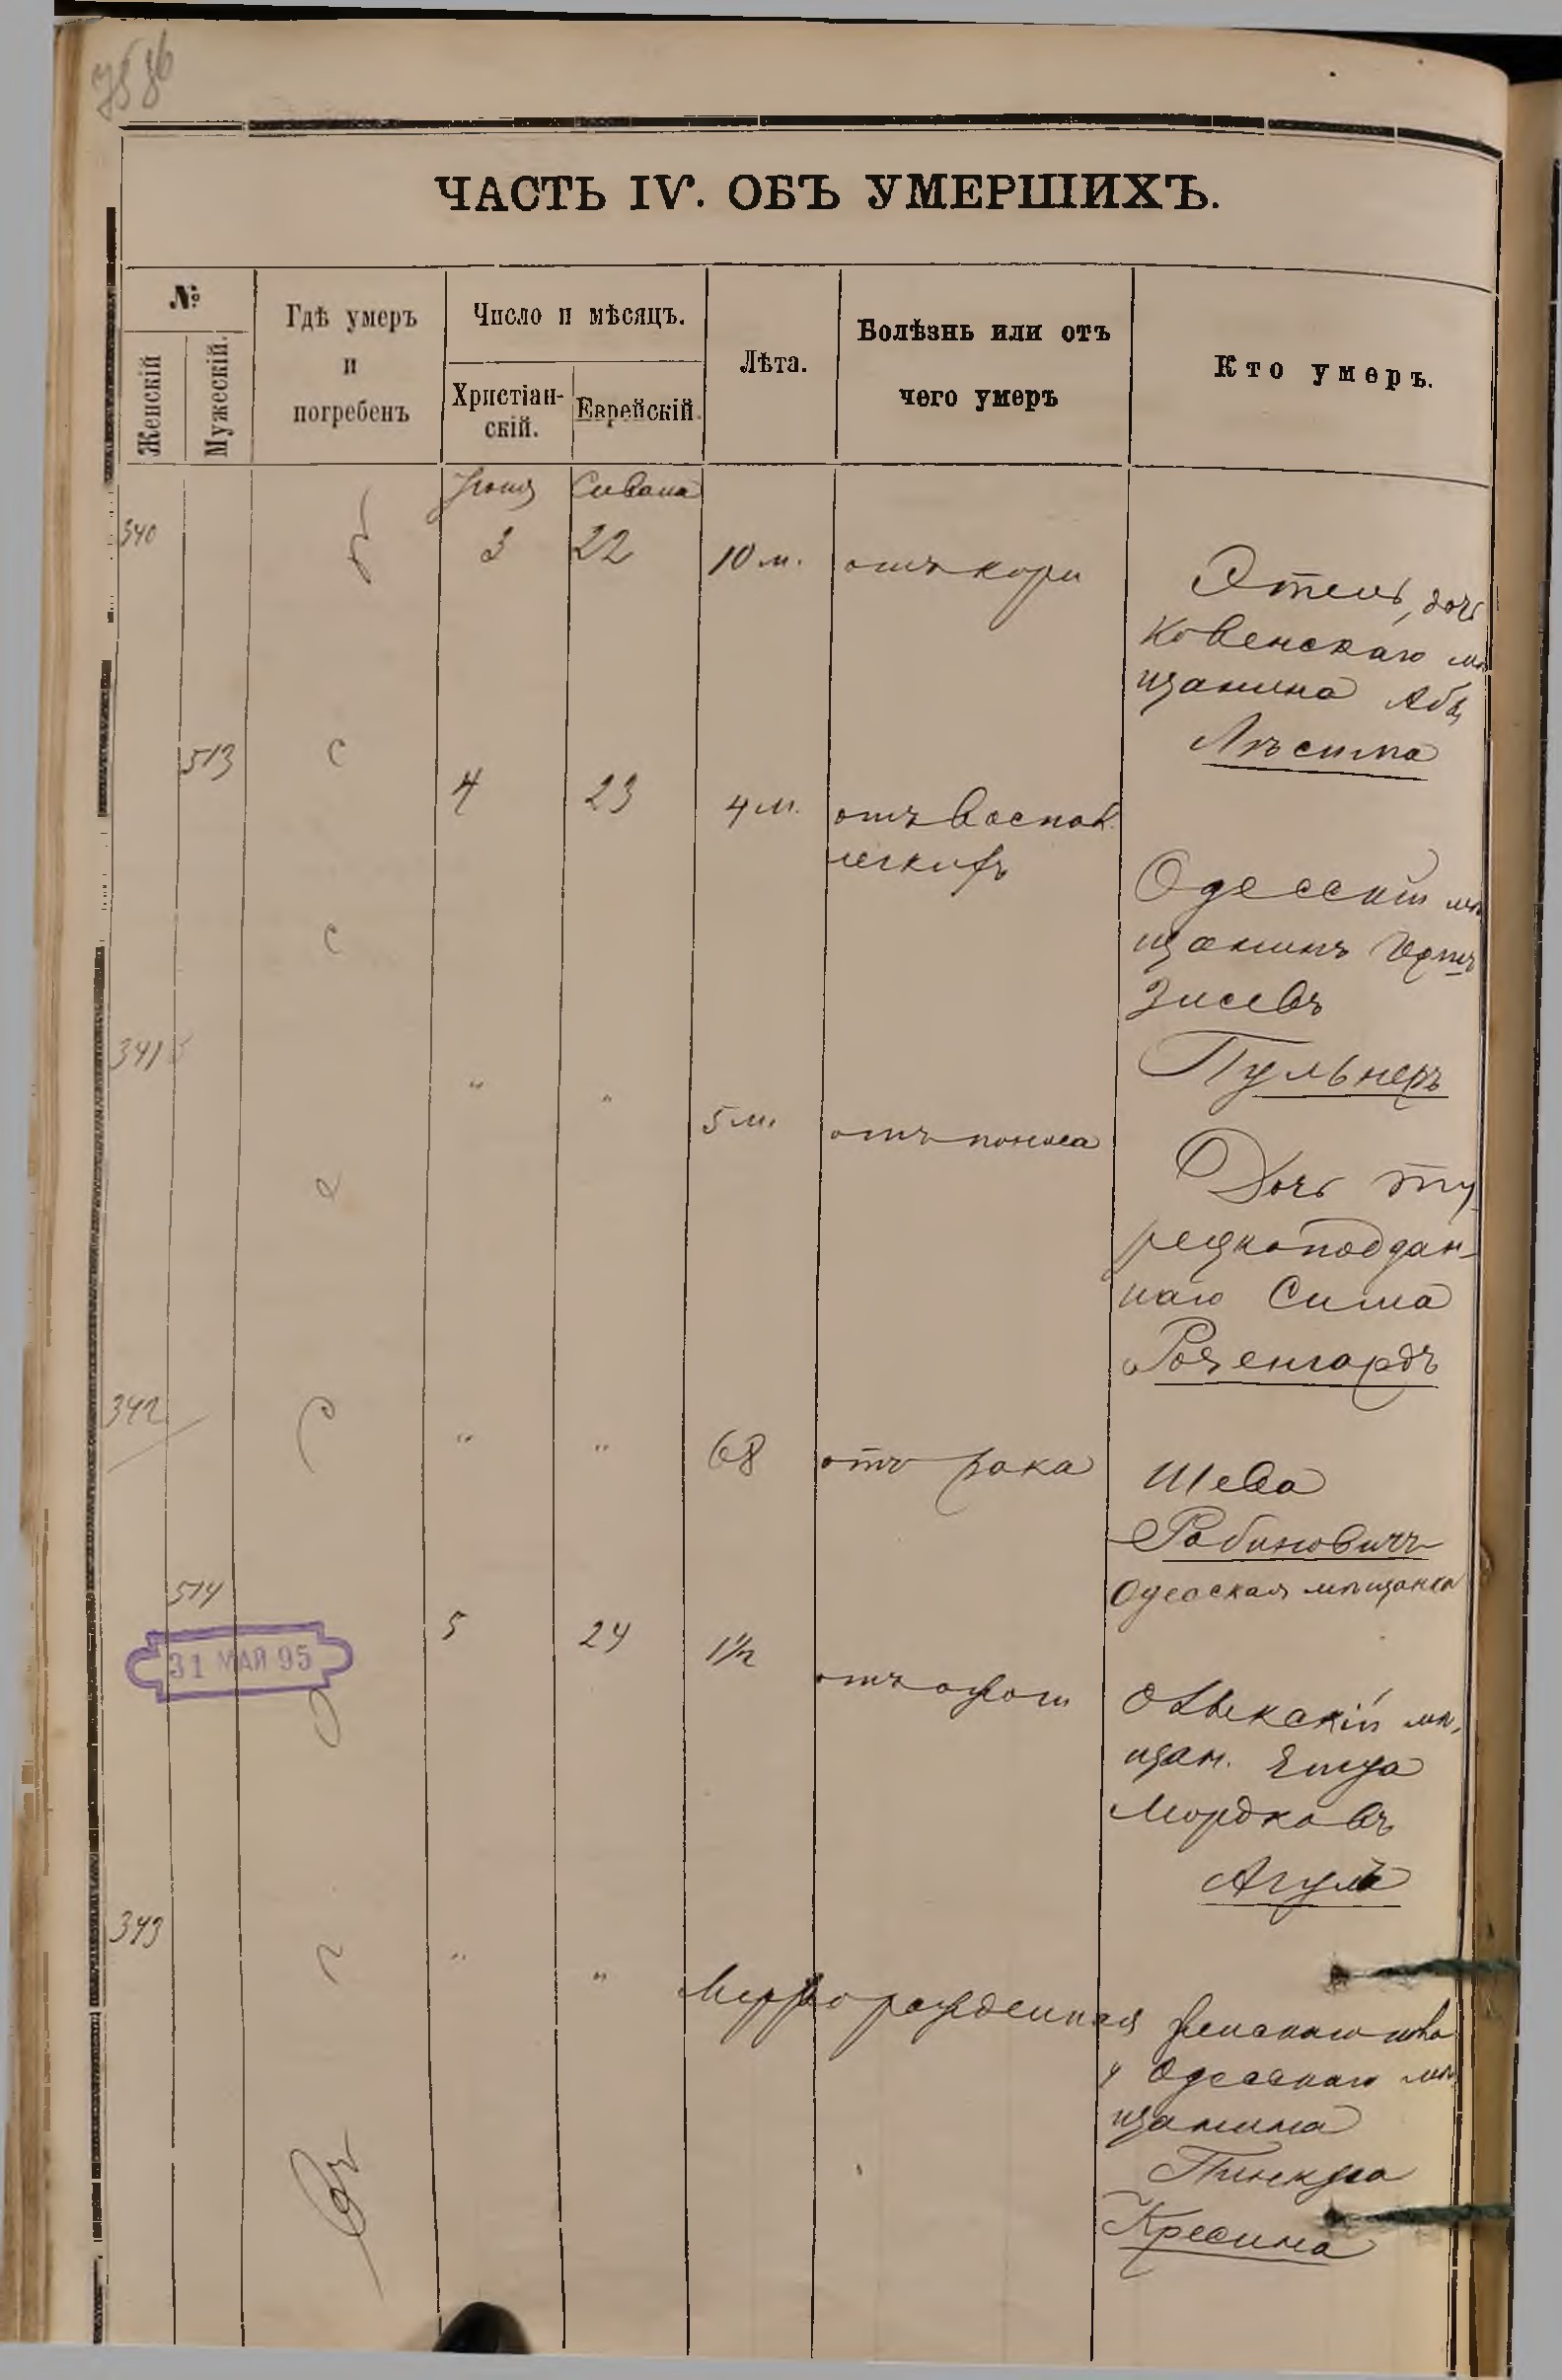 7586
ЧАСТЬ IV. ОБЪ УМЕРШИХЪ.
№
Женскій
Мужескій.
Гдѣ умеръ
и
погребенъ
Число и мѣсяцъ.
Христіан-
скій.
Еврейскій.
Лѣта.
Болѣзнь или отъ
чего умеръ
Кто умеръ.
Іюня Сивана
340 3 22 10 м. отъ кори
Этель, дочь
Ковенскаго мѣ
щанина Абы
513 4 23 4 м. отъ воспал.
легкихъ
Одесскій мѣ
щанинъ
Зисевъ
Пульнеръ
341 " " 5 м. отъ поноса
Дочь ту
рецкоподдан-
наго Сима
Розенгардъ
342 " " 68 отъ рака
Шева
Рабиновичъ
Одесская мѣщанка
514 5 24 1½ отъ
31 МАЙ 95
мѣ
щан.
Мордковъ
Агуля
343 " " Мертворожденная женскаго пола
у Одесскаго мѣ
щанина
Пинкуса
Кресина